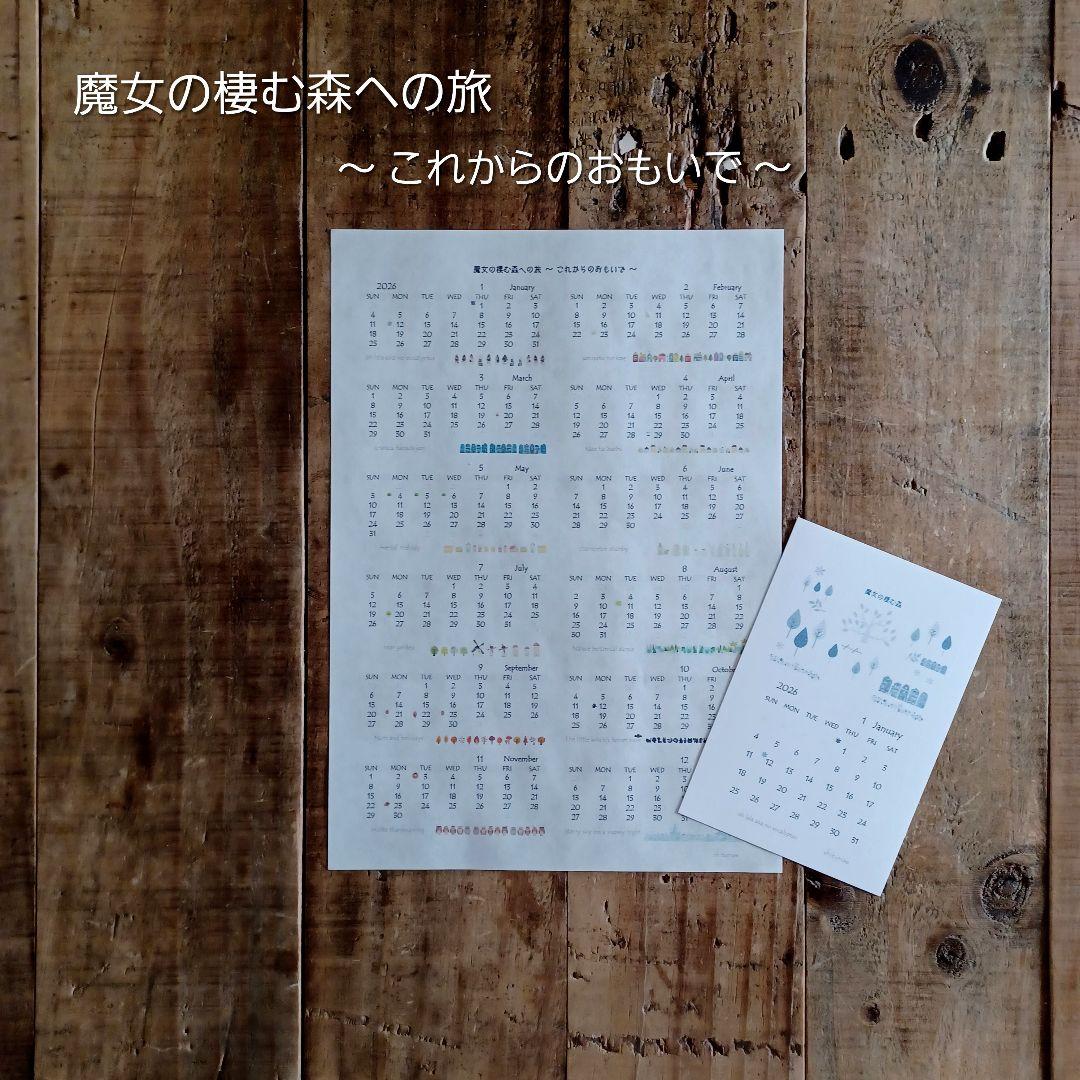 魔女の棲む森への旅
～ これからのおもいで ～
魔女の棲む森への旅 ～ これからのおもいで ～
2026 1 January
SUN MON TUE WED THU FRI SAT
1 2 3
4 5 6 7 8 9 10
11 12 13 14 15 16 17
18 19 20 21 22 23 24
25 26 27 28 29 30 31
2 February
SUN MON TUE WED THU FRI SAT
1 2 3 4 5 6 7
8 9 10 11 12 13 14
15 16 17 18 19 20 21
22 23 24 25 26 27 28
3 March
SUN MON TUE WED THU FRI SAT
1 2 3 4 5 6 7
8 9 10 11 12 13 14
15 16 17 18 19 20 21
22 23 24 25 26 27 28
29 30 31
4 April
SUN MON TUE WED THU FRI SAT
1 2 3 4
5 6 7 8 9 10 11
12 13 14 15 16 17 18
19 20 21 22 23 24 25
26 27 28 29 30
5 May
SUN MON TUE WED THU FRI SAT
1 2
3 4 5 6 7 8 9
10 11 12 13 14 15 16
17 18 19 20 21 22 23
24 25 26 27 28 29 30
31
6 June
SUN MON TUE WED THU FRI SAT
1 2 3 4 5 6
7 8 9 10 11 12 13
14 15 16 17 18 19 20
21 22 23 24 25 26 27
28 29 30
7 July
SUN MON TUE WED THU FRI SAT
1 2 3 4
5 6 7 8 9 10 11
12 13 14 15 16 17 18
19 20 21 22 23 24 25
26 27 28 29 30 31
8 August
SUN MON TUE WED THU FRI SAT
1
2 3 4 5 6 7 8
9 10 11 12 13 14 15
16 17 18 19 20 21 22
23 24 25 26 27 28 29
30 31
9 September
SUN MON TUE WED THU FRI SAT
1 2 3 4 5
6 7 8 9 10 11 12
13 14 15 16 17 18 19
20 21 22 23 24 25 26
27 28 29 30
10 Octob
SUN MON TUE WED THU FRI
1 2
4 5 6 7 8 9
11 12 13 14 15
18 19 20 21 22
25 26 27 28 29
11 November
SUN MON TUE WED THU FRI SAT
1 2 3 4 5 6 7
8 9 10 11 12 13 14
15 16 17 18 19 20 21
22 23 24 25 26 27 28
29 30
12
SUN MON TUE WED THU
1 2 3
6 7 8 9 10
13 14 15 16 17
20 21 22 23 24
27 28 29 30 31
魔女の棲む森
2026 1 January
SUN MON TUE WED THU FRI SAT
1 2 3
4 5 6 7 8 9 10
11 12 13 14 15 16 17
18 19 20 21 22 23 24
25 26 27 28 29 30 31